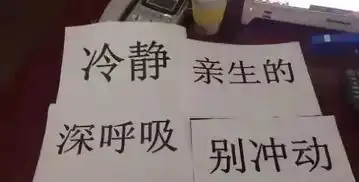 冷静
亲生的
深呼吸
别冲动